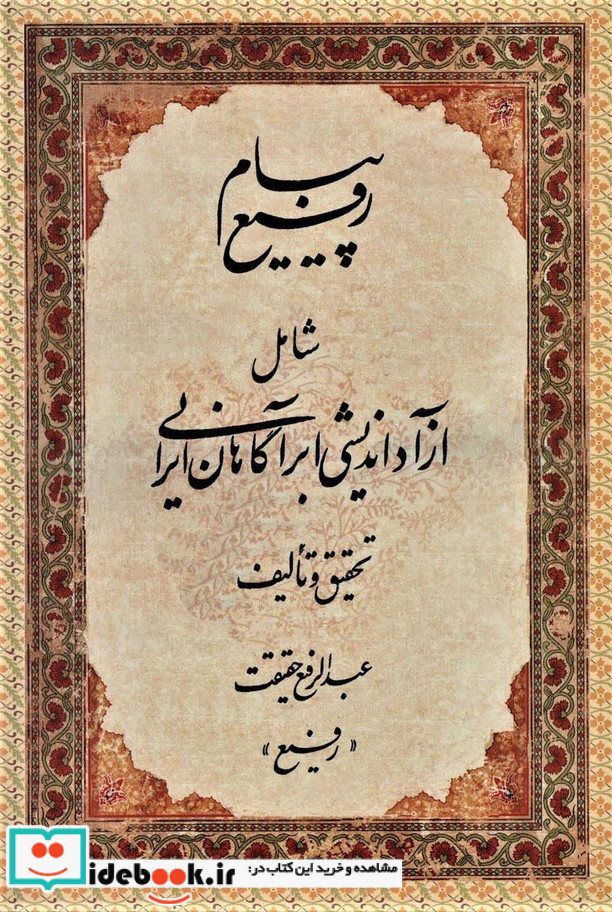 پیام
رفیع
شامل
آزاداندیشی ابرآگاهان ایرانی
تحقیق و تألیف
عبدالرفیع حقیقت
«رفیع»
مشاهده و خرید این کتاب در:
idebook.ir